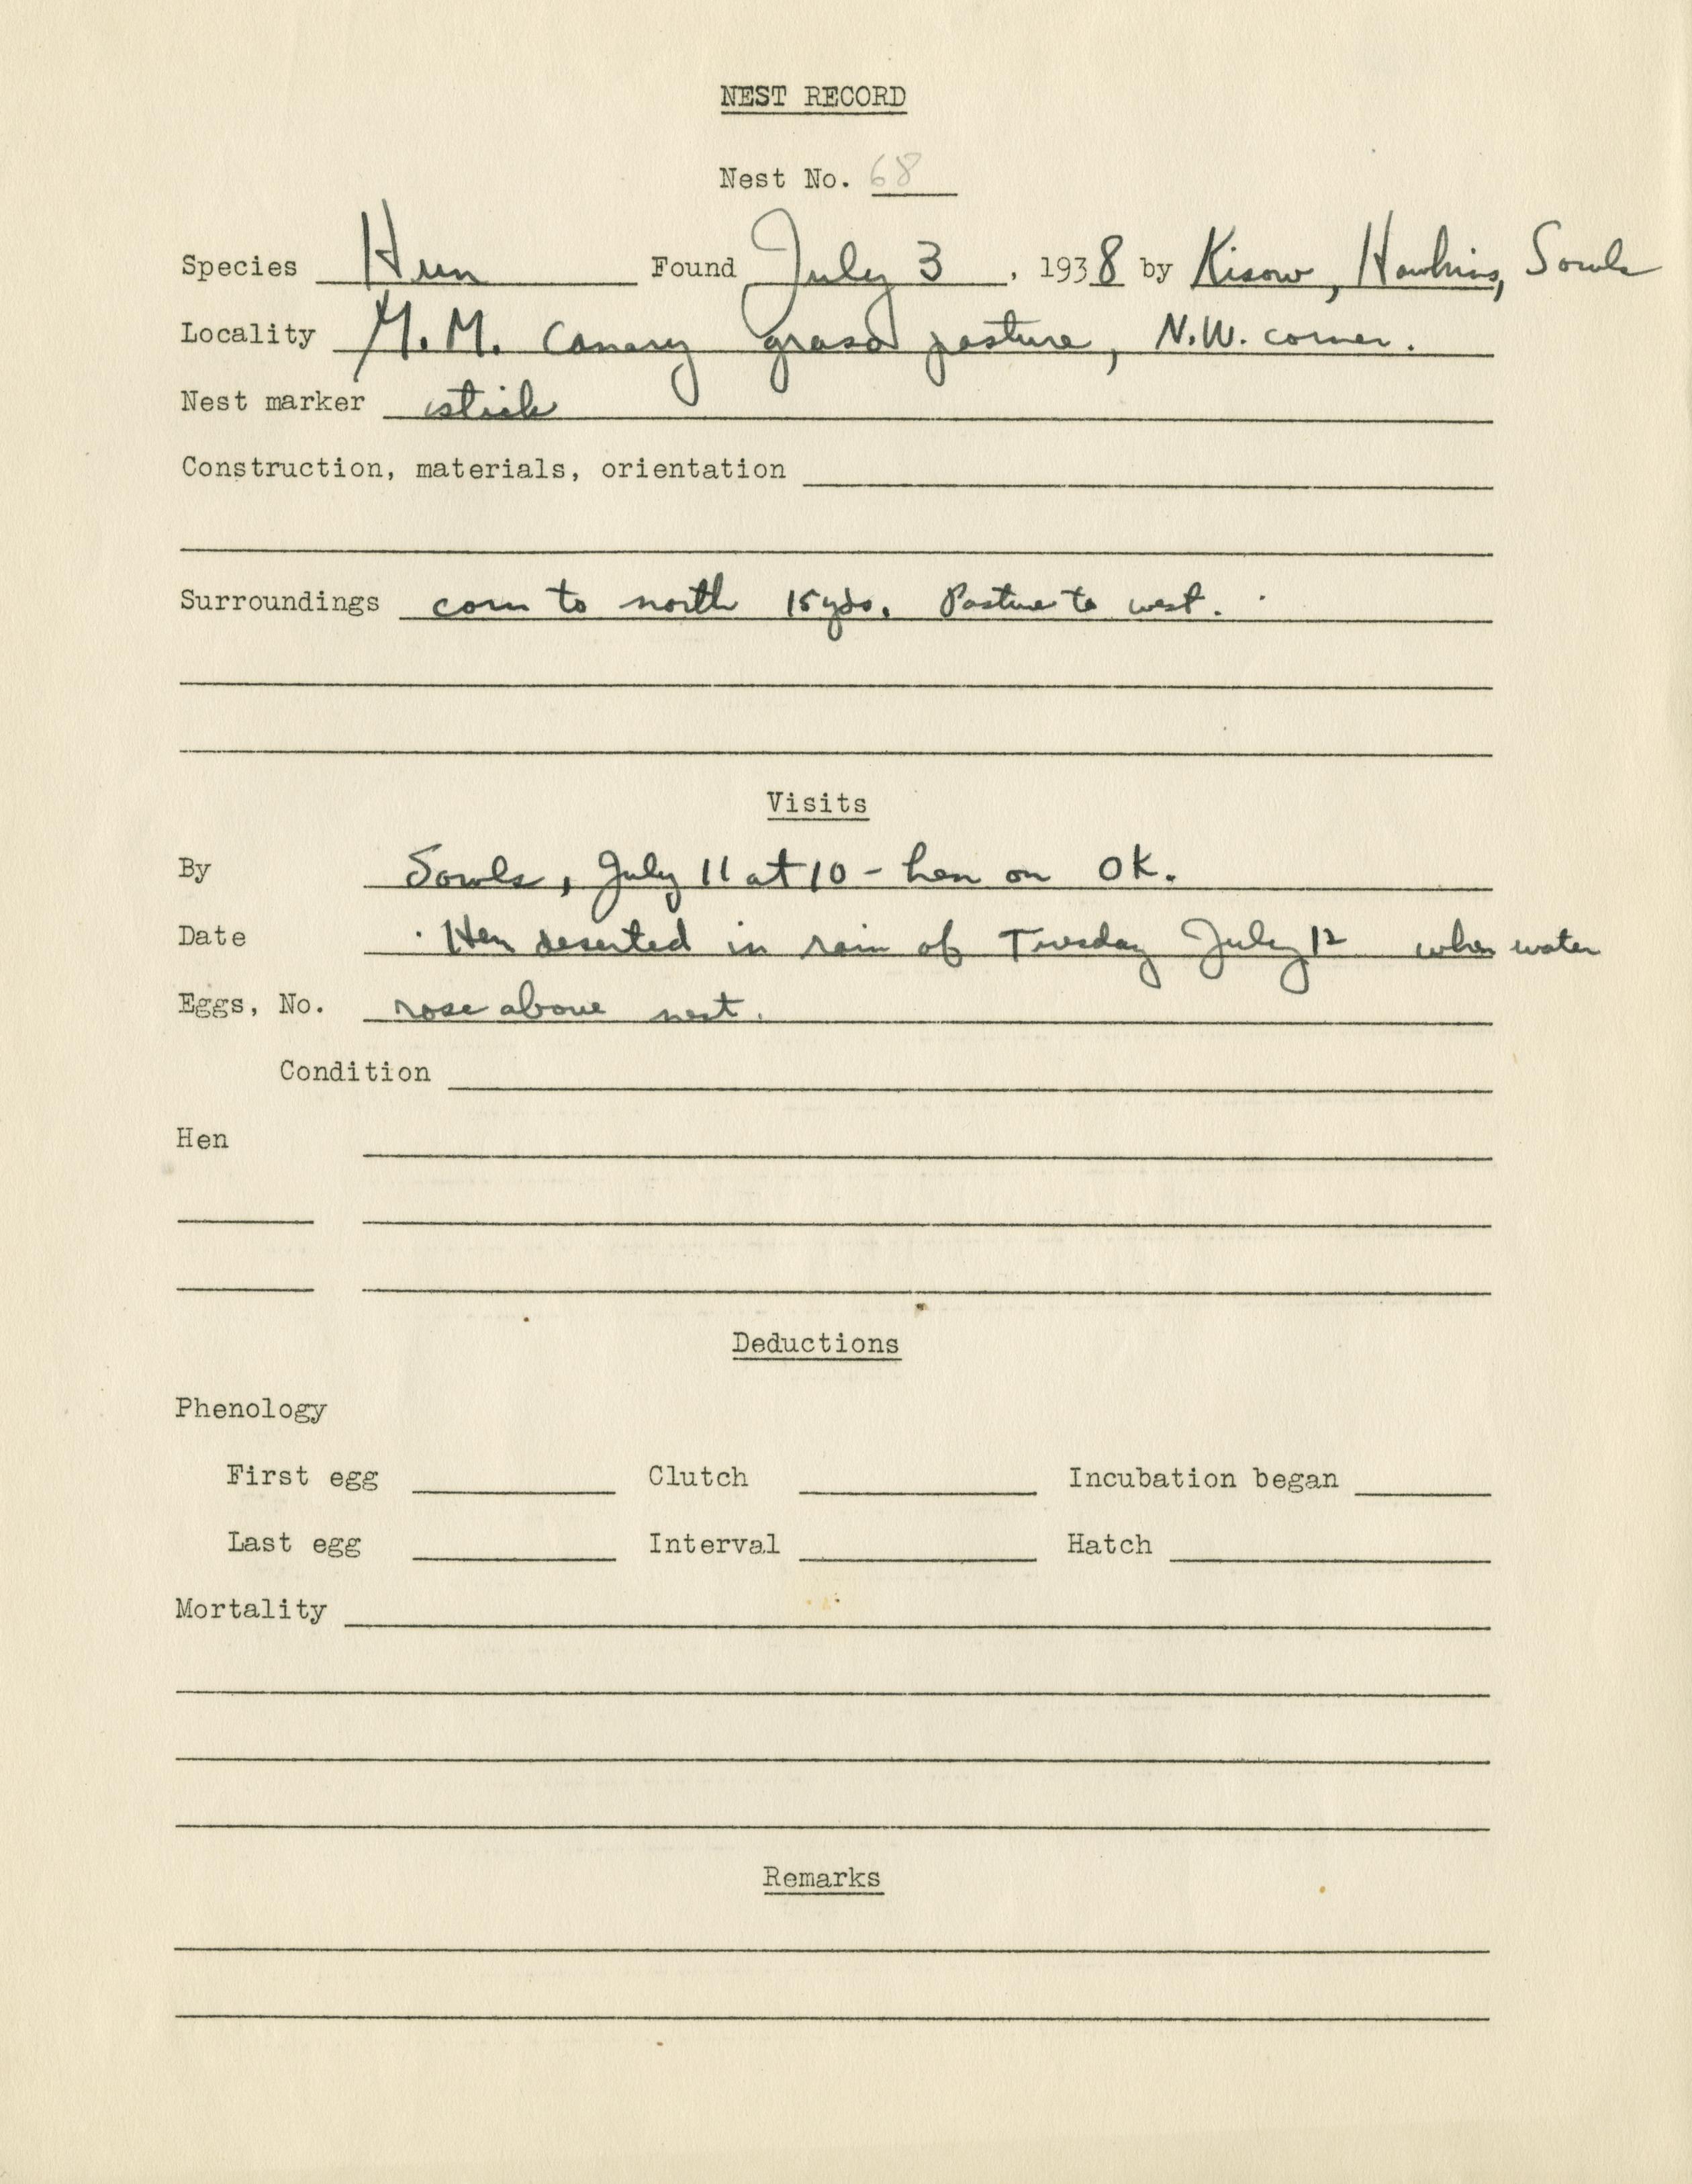 NEST RECORD
Nest No. 68
Species Hun Found July 3, 1938 by Kisow, Hawkins, Sowls
Locality M.M. Canary grass pasture, N.W. corner.
Nest marker stick
Construction, materials, orientation
Surroundings corn to north 15 yds. Pasture to west.
Visits
By Sowls, July 11 at 10 - hen on OK.
Date Hen deserted in rain of Tuesday July 12 when water
Eggs, No. rose above nest.
Condition
Hen
Deductions
Phenology
First egg Clutch Incubation began
Last egg Interval Hatch
Mortality
Remarks